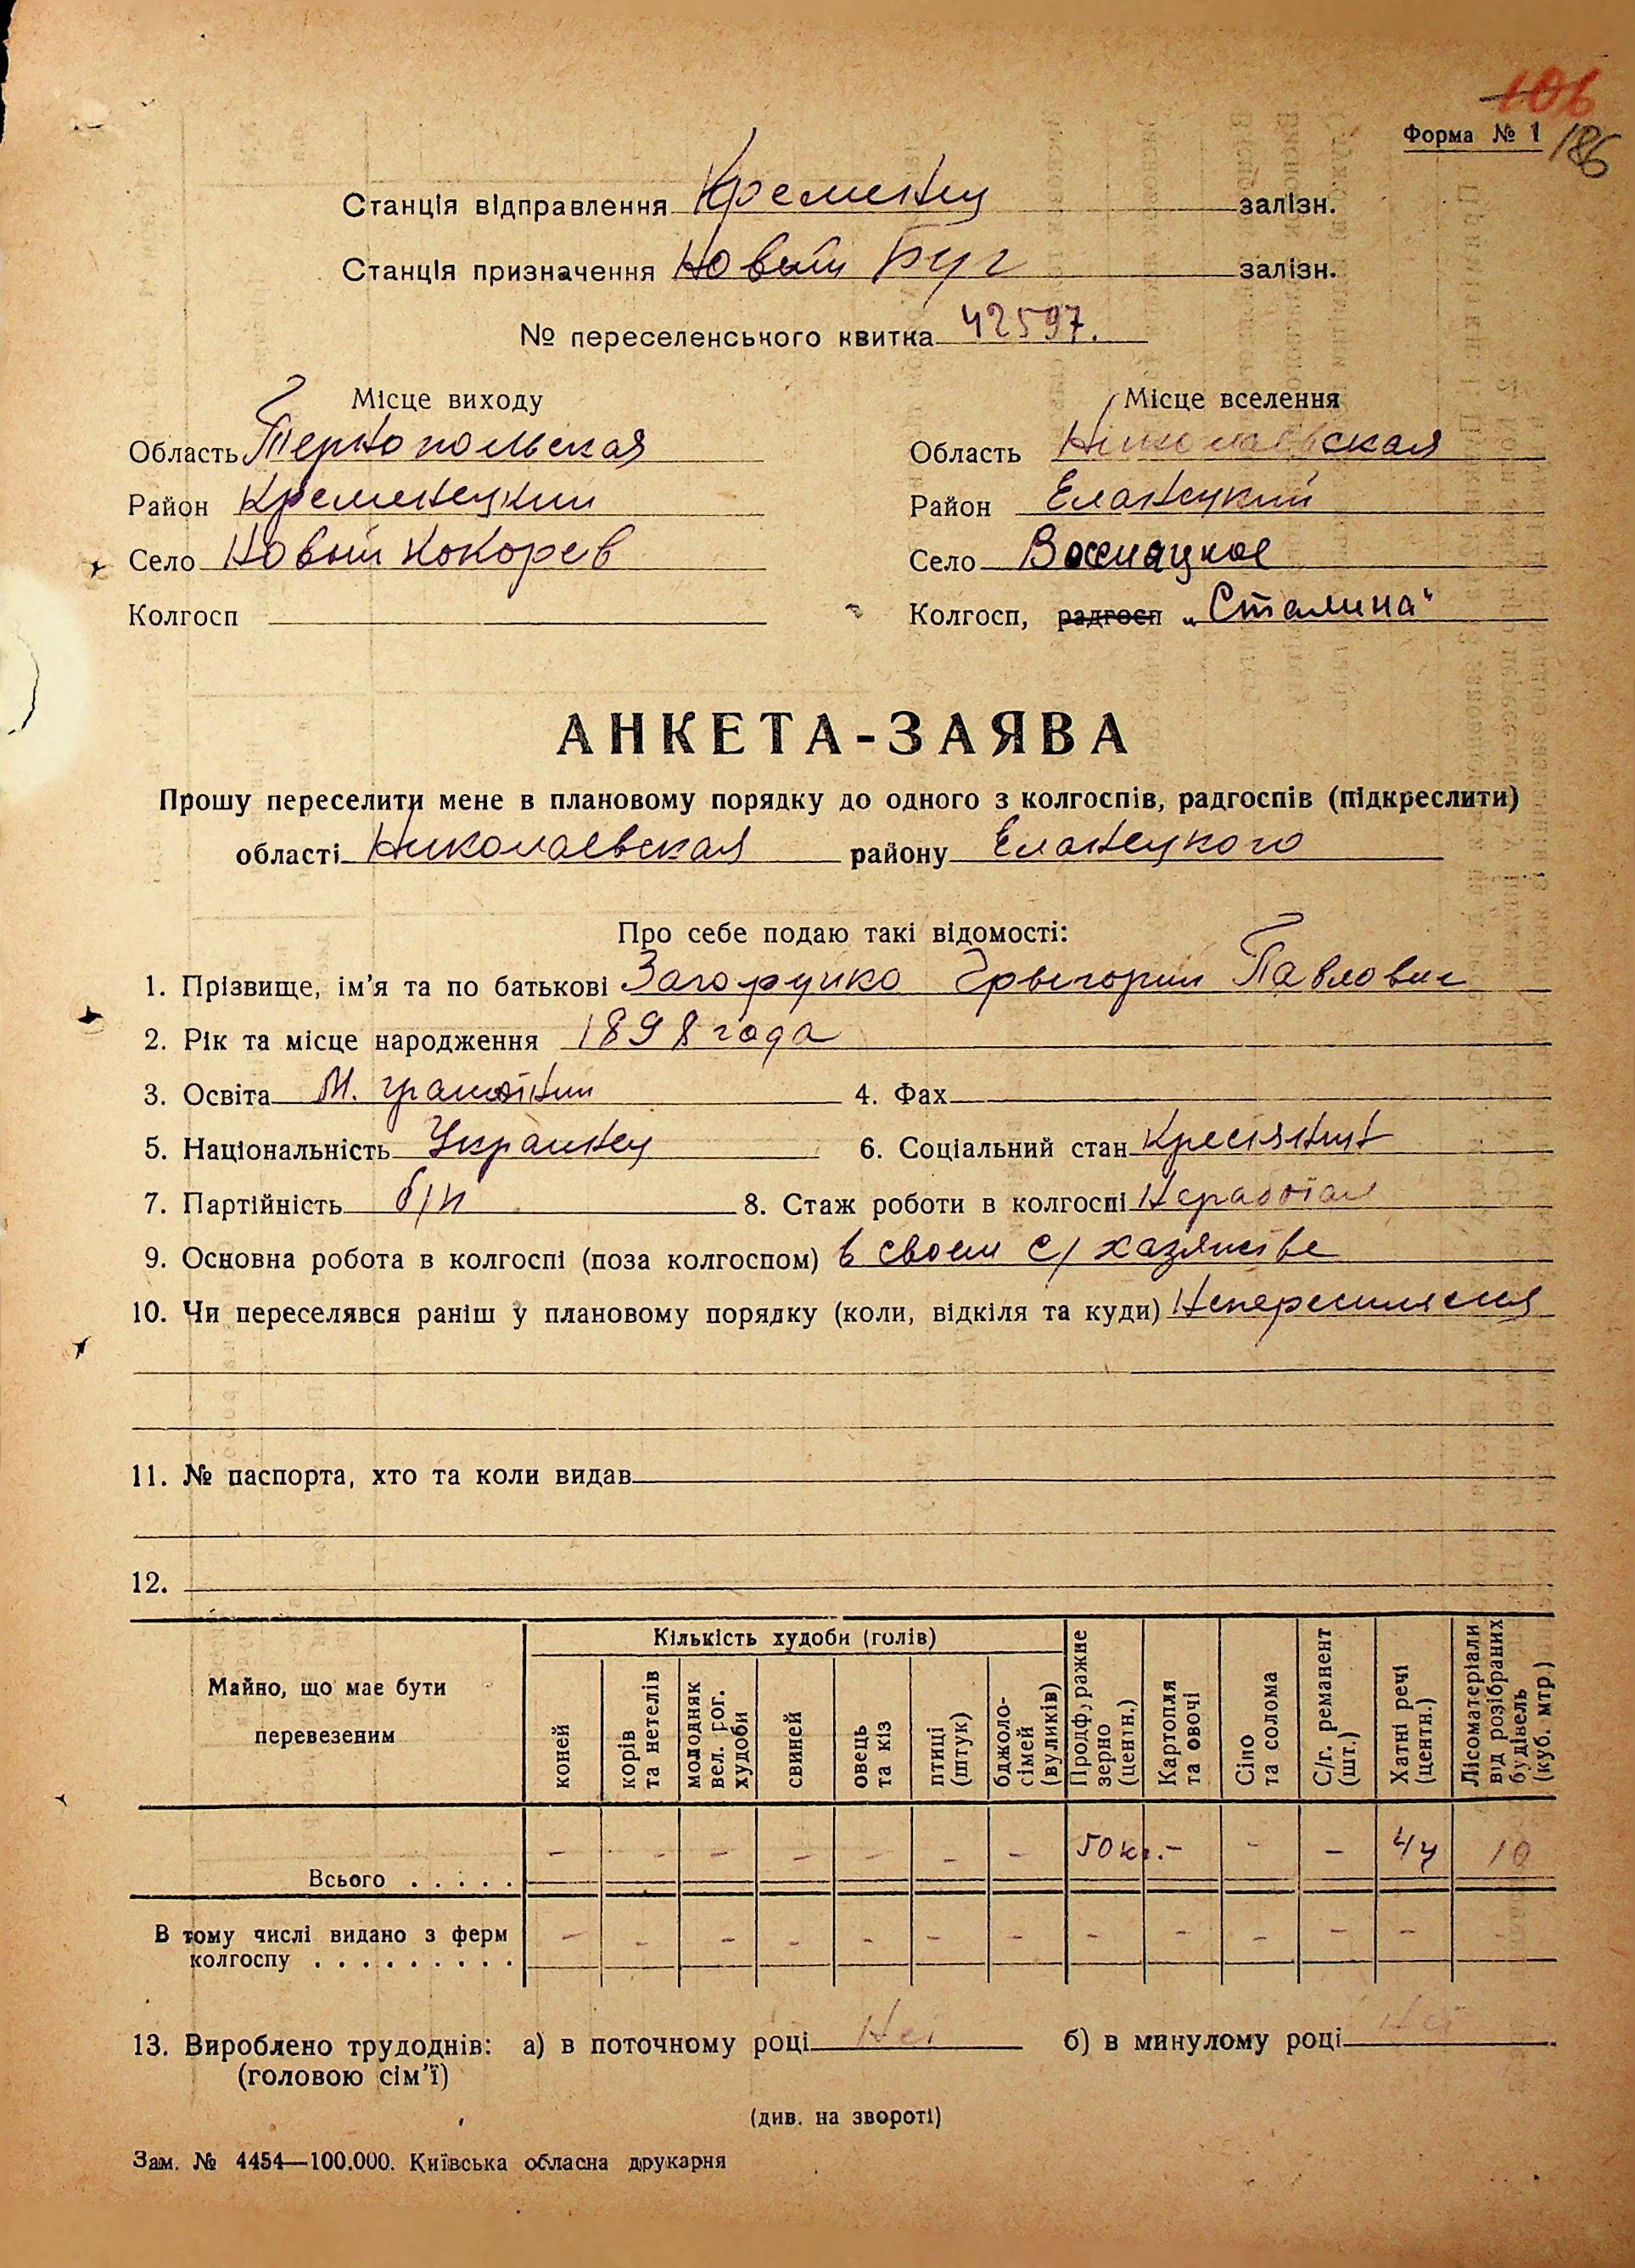 106
Форма № 1 186
Станція відправлення Кременец залізн.
Станція призначення Новый Буг залізн.
№ переселенського квитка 42597.
Місце виходу Місце вселення
Область Тернопольская Область Николаевская
Район Кременецкий Район Еланецкий
Село Новый Кокорев Село
Колгосп Колгосп, радгосп „Сталина“
АНКЕТА-ЗАЯВА
Прошу переселити мене в плановому порядку до одного з колгоспів, радгоспів (підкреслити)
області Николаевская району Еланецкого
Про себе подаю такі відомості:
1. Прізвище, ім’я та по батькові Загоруйко Грыгорий Павлович
2. Рік та місце народження 1898 года
3. Освіта М. грамотний 4. Фах
5. Національність Украинец 6. Соціальний стан
7. Партійність б/п 8. Стаж роботи в колгоспі Неработал
9. Основна робота в колгоспі (поза колгоспом) в своем с/хазяистве
10. Чи переселявся раніш у плановому порядку (коли, відкіля та куди)
11. № паспорта, хто та коли видав
12.
Майно, що має бути перевезеним
Кількість худоби (голів)
коней
корів та нетелів
молодняк вел. рог. худоби
свиней
овець та кіз
птиці (штук)
бджоло-сімей (вуликів)
Продф,ражне зерно (центн.)
Картопля та овочі
Сіно та солома
С/г. реманент (шт.)
Хатні речі (центн.)
Лісоматеріали від розібраних будівель (куб. мтр.)
Всього . . . . . - - - - - - - 50 кг. - - - 4ц 10
В тому числі видано з ферм
колгоспу . . . . . . . . . - - - - - - - - - - - -
13. Вироблено трудоднів: а) в поточному році Нет б) в минулому році Нет
(головою сім’ї)
(див. на звороті)
Зам. № 4454—100.000. Київська обласна друкарня